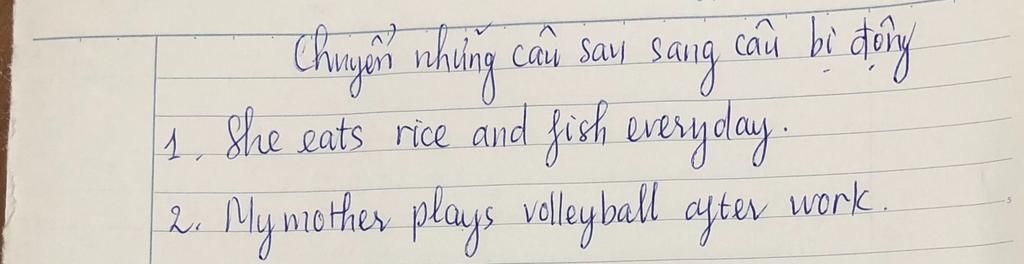 Chuyển những câu sau sang câu bị động
1. She eats rice and fish everyday.
2. My mother plays volleyball after work.